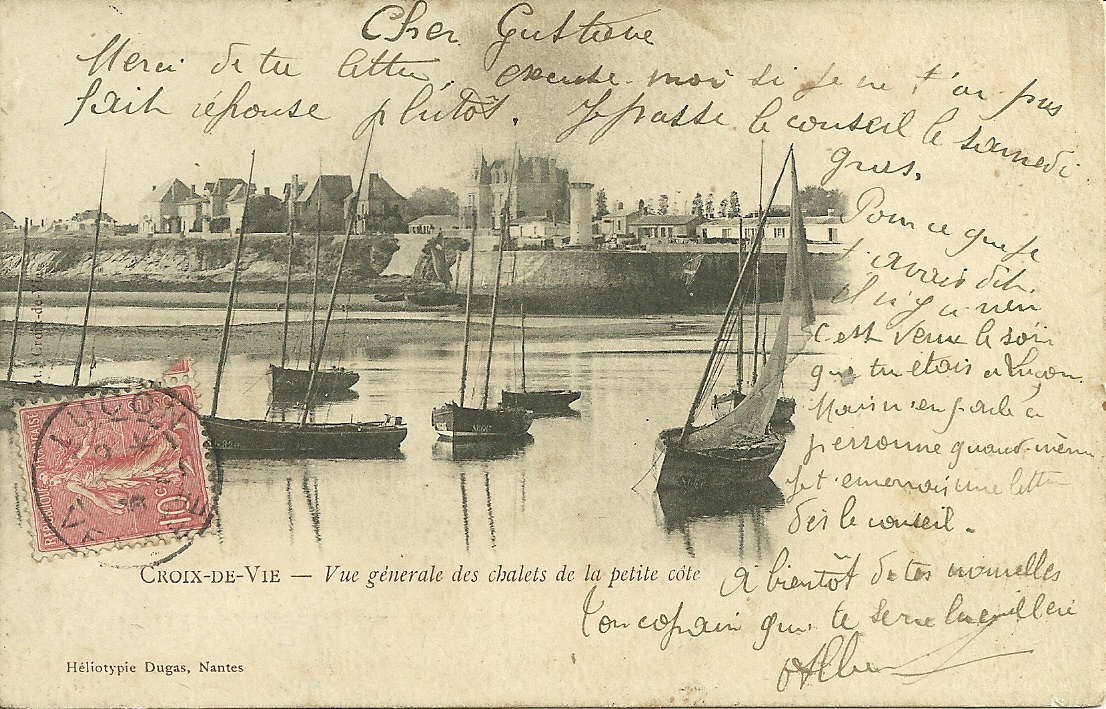 Cher Gustave
Merci de ta lettre, excuse-moi si je ne t'ai pas
fait réponse plûtôt. Je passe le conseil le samedi
gras.
Pour ce que je
t'avais dit
il n'y a rien
c'est venu le soir
que tu étais a Luçon.
Mais n'en parle a
personne quand-même
je t'enverrais une lettre
dès le conseil.
A bientôt de tes nouvelles
Ton copain qui te serre la cuillère
Albert
CROIX-DE-VIE — Vue générale des chalets de la petite côte
Héliotypie Dugas, Nantes
LUÇON
10 c.